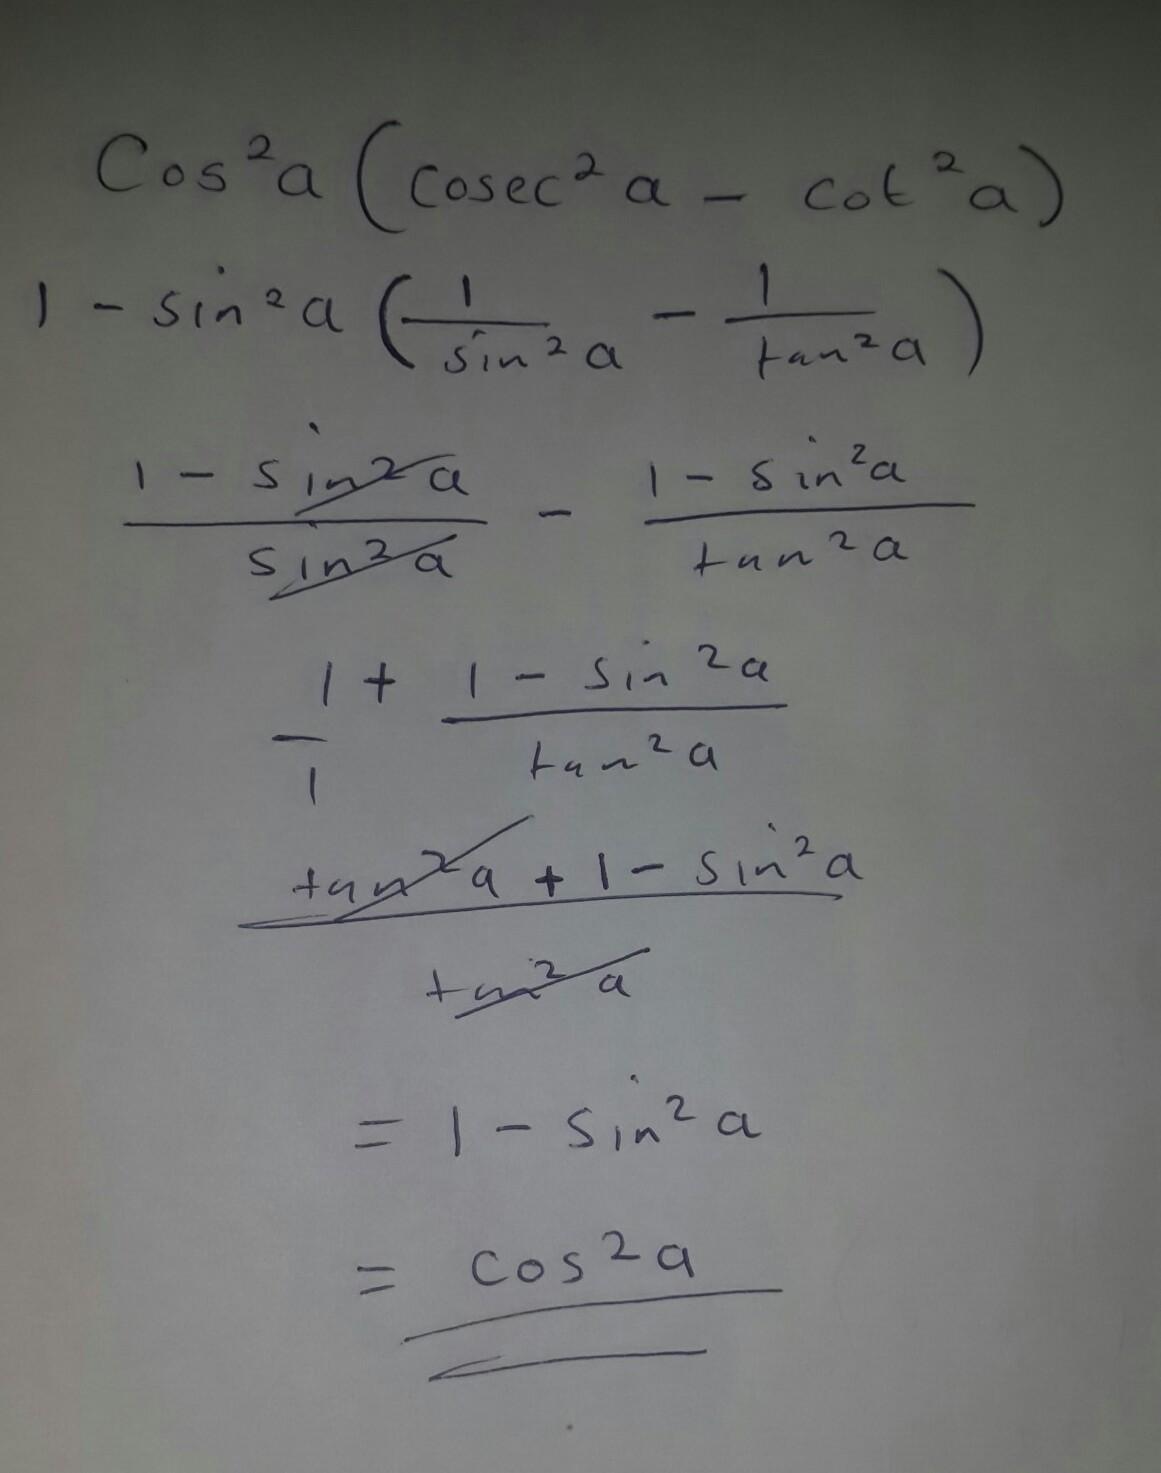 Cos²a (cosec²a - cot²a)
1 - sin²a (1/sin²a - 1/tan²a)
1 - sin²a / sin²a - 1 - sin²a / tan²a
1/1 + 1 - sin²a / tan²a
tan²a + 1 - sin²a / tan²a
= 1 - sin²a
= cos²a